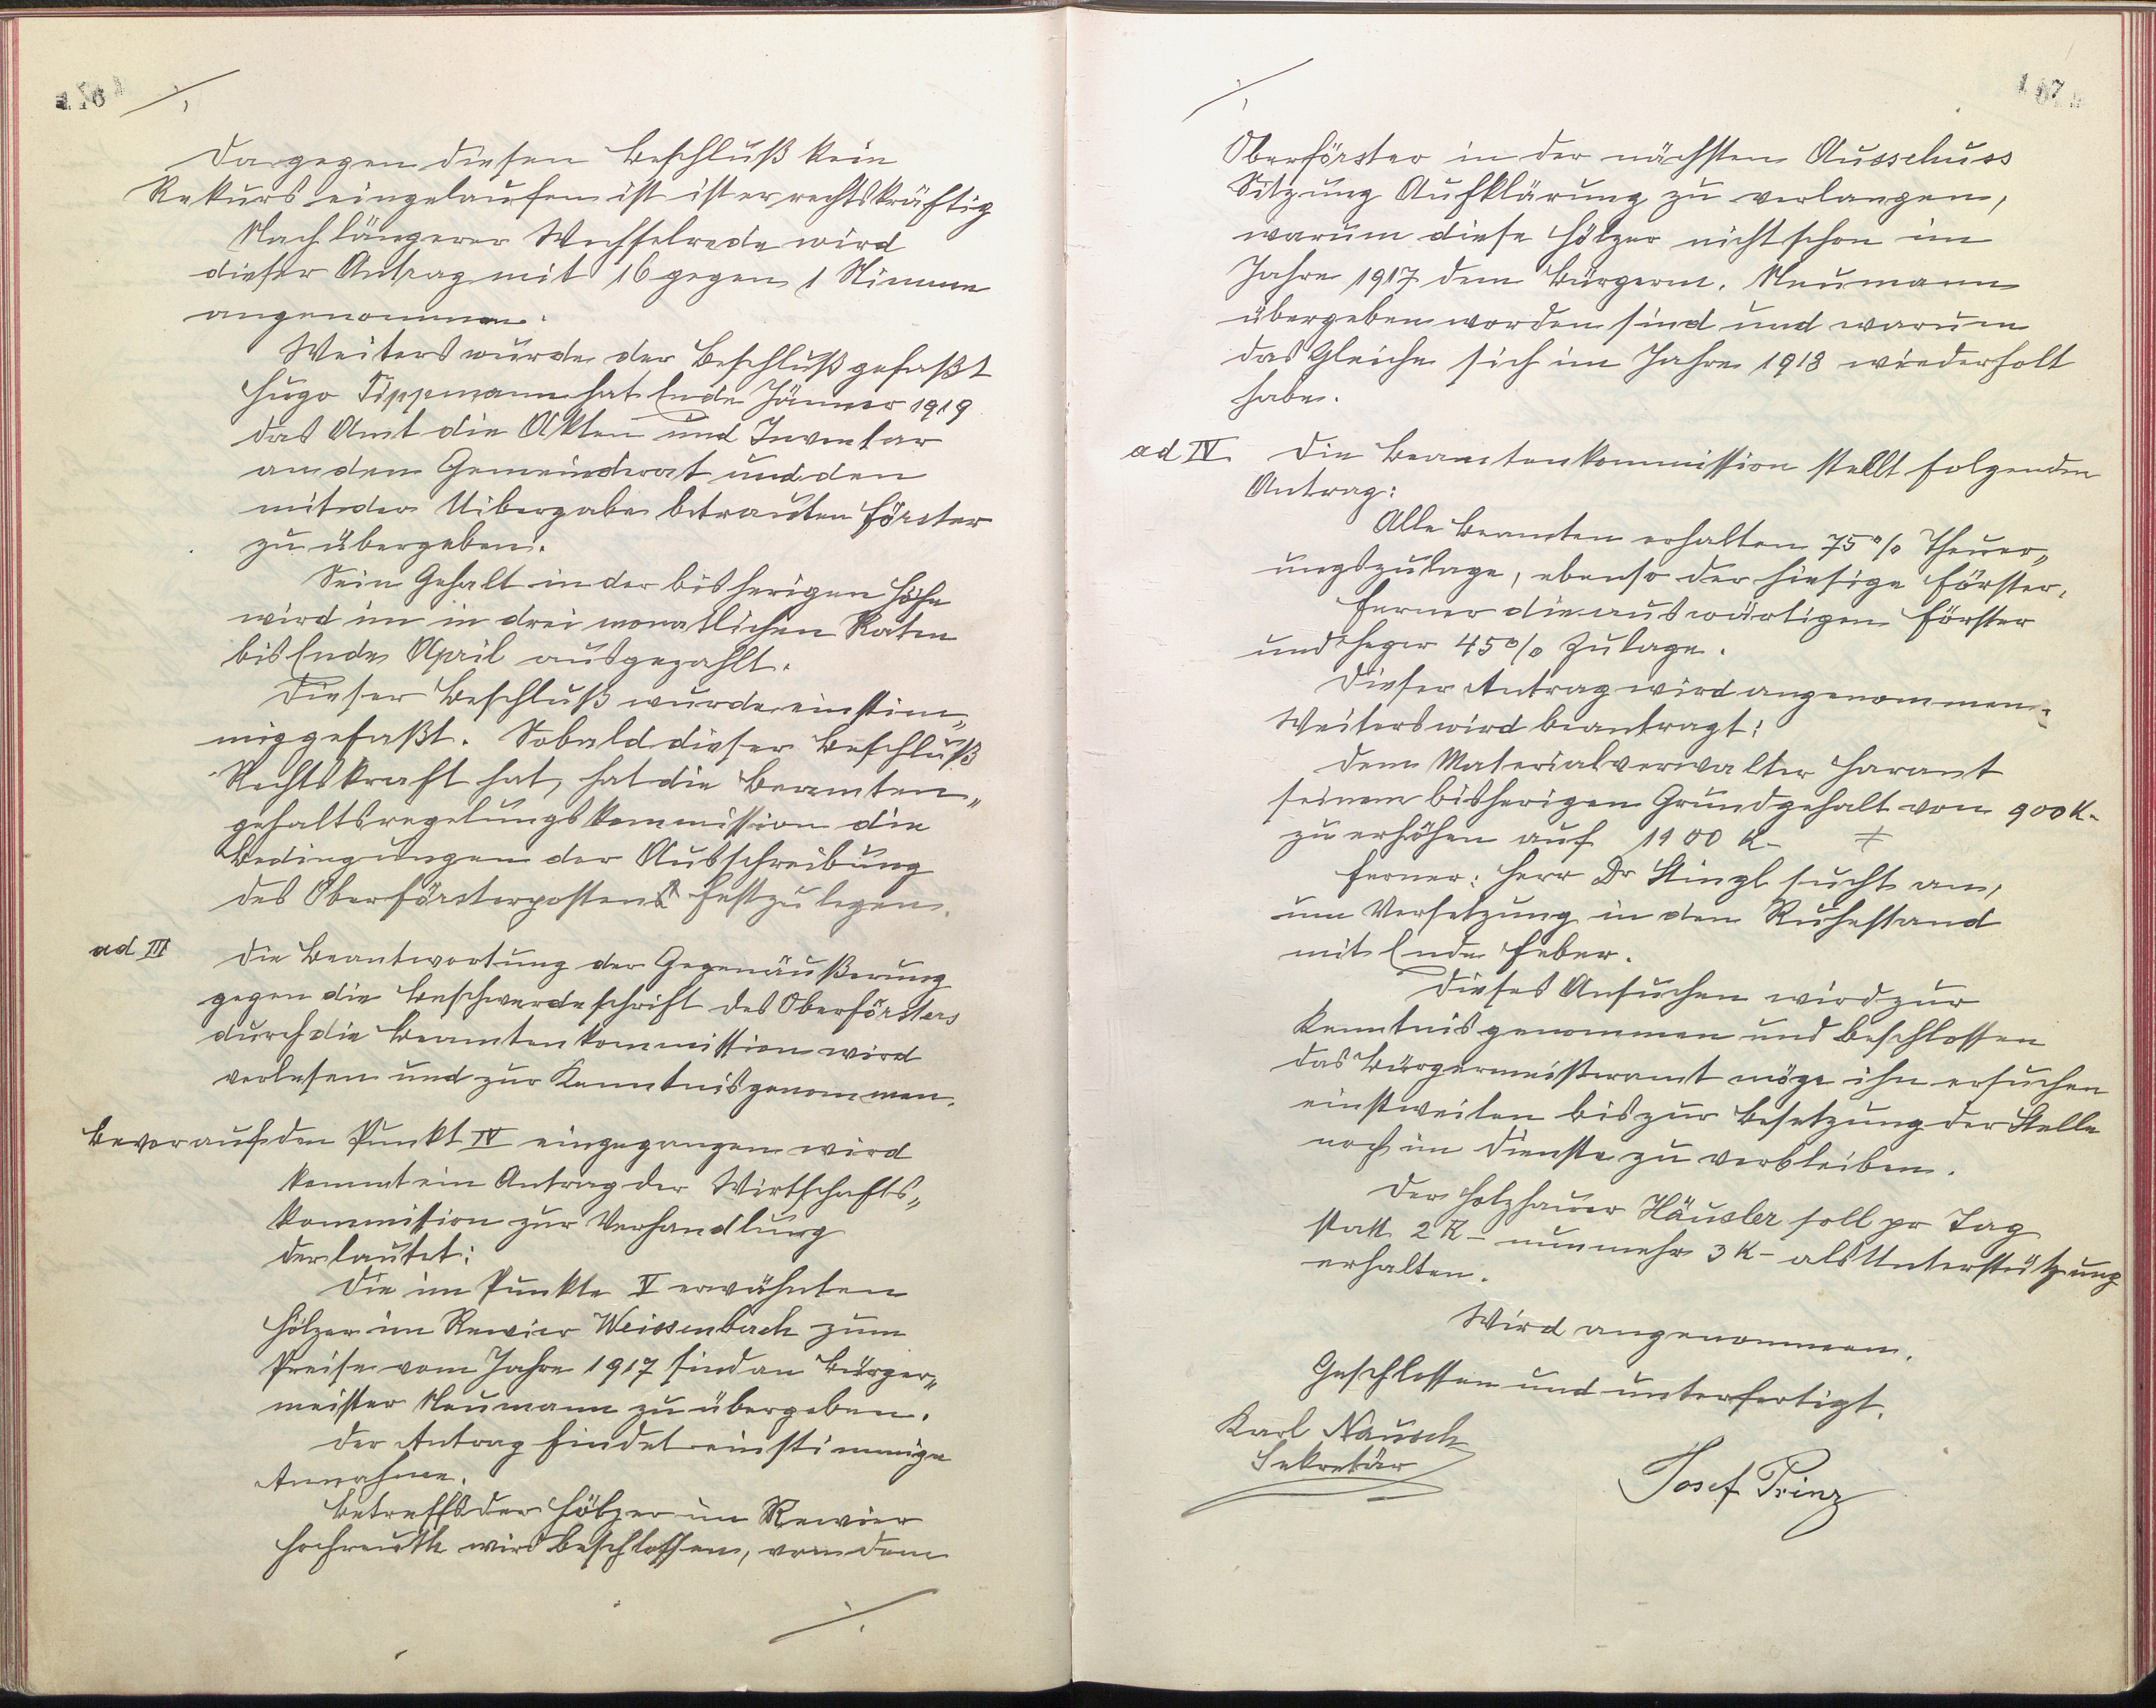 ./.
Da gegen diesen Beschluß kein
Rekurs eingelaufen ist ist er rechtskräftig
Nach längerer Wechselrede wird
dieser Antrag mit 16 gegen 1 Stimme
angenommen.
Weiters wurde der Beschluß gefaßt
Hugo Tippmann hat Ende Jänner 1919
das Amt die Akten und Inventar
an den Gemeinderat und den
mit der Uibergabe betrauten Förster
zu übergeben.
Sein Gehalt in der bisherigen Höhe
wird im in drei monatlichen Raten
bis Ende April ausgezahlt.
Dieser Beschluß wurde einstim„
mig gefaßt. Sobald dieser Beschluß
Rechtskraft hat, hat die Beamten„
gehaltsregelungskommission die
Bedingungen der Ausschreibung
des Oberförsterpostens festzulegen.
ad III Die Beantwortung der Gegenäußerung
gegen die Beschwerdeschrift des Oberförsters
durch die Beamtenkommission wird
verlesen und zur Kenntnis genommen.
Bevor auf den Punkt IV eingegangen wird
kommt ein Antrag der Wirtschafts„
kommission zur Verhandlung
der lautet:
Die im Punkte V erwähnten
Hölzer im Rewier Weissenbach zum
Preise vom Jahre 1917 sind an Bürger„
meister Neumann zu übergeben.
Der Antrag findet einstimmige
Annahme.
Betreffs der Hölzer im Rewier
Hochreuth wird beschlossen, von dem
./.
167
./.
Oberförster in der nächsten Ausschuss
Sitzung Aufklärung zu verlangen,
warum diese Hölzer nicht schon im
Jahre 1917 dem Bürgerm. Neumann
übergeben worden sind und warum
das Gleiche sich im Jahre 1918 wiederholt
habe.
ad IV Die Beamtenkommission stellt folgenden
Antrag:
Alle Beamten erhalten 75% Theuer„
ungszulage, ebenso der hiesige Förster.
Ferner die auswärtigen Förster
und Heger 45% Zulage.
Dieser Antrag wird angenommen.
Weiters wird beantragt:
Dem Materialverwalter Harant
seinem bisherigen Grundgehalt von 900 K-
zu erhöhen auf 1100 K- ≠
Ferner: Herr Dr Stingl sucht an,
um Versetzung in den Ruhestand
mit Ende Feber.
Dieses Ansuchen wird zur
Kenntnis genommen und beschlossen
das Bürgermeisteramt möge ihn ersuchen
einstweilen bis zur Besetzung der Stelle
noch im Dienste zu verbleiben.
Der Holzhauer Häusler soll pr Tag
statt 2 K- nunmehr 3 K- als Unterstützung
erhalten.
Wird angenommen.
Geschlossen und unterfertigt.
Karl Nausch
Sekretär
Josef Prinz